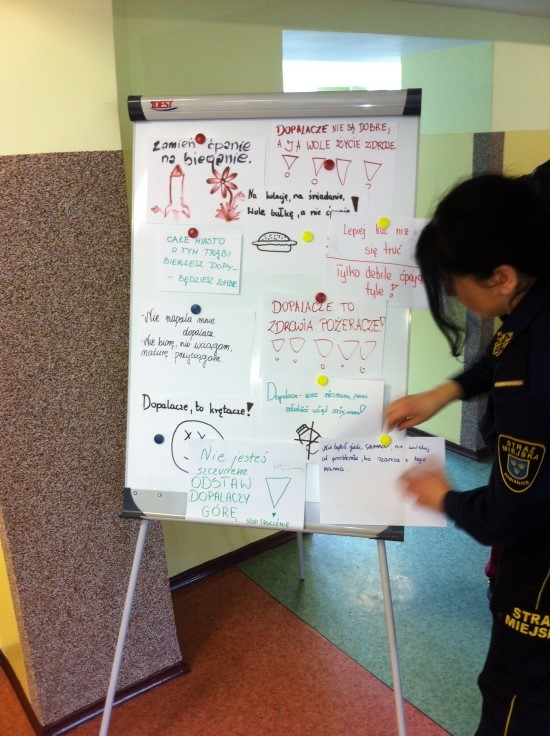 Zamień ćpanie
na bieganie.
DOPALACZE NIE SĄ DOBRE,
A JA WOLE ŻYCIE ZDROWE.
Na kolację, na śniadanie,
Wole bułkę, a nie ćpanie!
CAŁE MIASTO
O TYM TRĄBI
BIERZESZ DOPY-
- BĘDZIESZ ZOMBIE
Lepiej kuć niż
się truć
Tylko debile ćpają
tyle!
-Nie napala mnie
dopalacz
-Nie biorę, nie wciągam,
naturę przyciągam
DOPALACZE TO
ZDROWIA POŻERACZE!
Dopalacze, to krętacze!
Nie jesteś
szczurem
ODSTAW
DOPALACZY
GÓRĘ
STOP TRUCIZNIE
STRAŻ
MIEJSKA
STRAŻ
MIEJSK